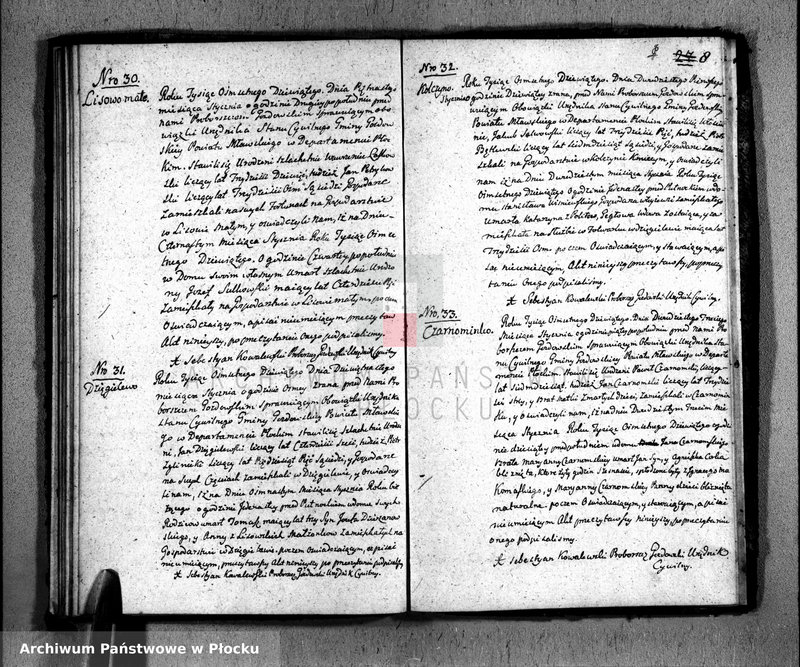 Nro 30.
Lisowo małe.
Roku Tysiąc Ośmsetnego Dziewiątego. Dnia Piętnastego
miesiąca Stycznia o godzinie Drugiey po południu przed
nami Proboszczem sprawuiącym obo
wiązki Urzędnika Stanu Cywilnego Gminy
Powiatu Mławskiego w Departamencie Płoc
kim. Stawili się Urodzeni Szlachetni Wawrzeniec
liczący lat Trzydzieści Dziewięć, tudzież Jan
liczący lat Trzydzieści Ośm Sąsiedzi
Zamieszkali na swych na Gospodarstwie
w Lisowie Małym, y oświadczyli Nam, iż na Dniu
Czternastym Miesiąca Stycznia Roku Tysiąc Ośmse
tnego Dziewiątego. O godzinie Czwartey popołudniu
w Domu swoim własnym Umarł Szlachetnie Urodzo
ny Józef Sulkowski maiący lat Czterdzieści Pięć
Zamieszkały na Gospodarstwie w Lisowie małym, po czem
Oświadczaiącym, a pisać nieumieiącym, przeczytawszy
Akt niniejszy, po przeczytaniu onego podpisaliśmy.
X Sebestyan Kowalewski Proboszcz Urzędnik Cywilny
Nro 31.
Dzięgielewo
Roku Tysiąc Ośmsetnego Dziewiątego Dnia Dziewiętnastego
miesiąca Stycznia o godzinie Osmey z rana, przed Nami Pro
boszczem sprawuiącym Obowiązki Urzędnika
Stanu Cywilnego Gminy Powiatu Mławskie
go w Departamencie Płockim stawili się Szlachetnie Urodze
ni, Jan Dzięgielewski liczący lat Czterdzieści Sześć, tudzież Piotr
Żyliński liczący lat Pięćdziesiąt Pięć Sąsiedzi, y Gospodarze
na swych Częściach Zamieszkali w Dzięgielewie, y oświadczy
li nam, iż na Dniu Osmnastym Miesiąca Stycznia Roku bie
żącego o godzinie Jedenastey przed Południem w domu swych
Rodziców umarł Tomasz maiący lat trzy Syn Józefa
skiego, y Anny z Lisowskich Małżonków Zamieszkałych na
Gospodarstwie w Dzięgielewie. poczem Oświadczaiącym, a pisać
nieumieiącym, przeczytawszy Akt niniejszy po przeczytaniu podpisaliśmy
X Sebestyan Kowalewski Proboszcz Urzędnik Cywilny.
8 27 8
Nro 32.
Kołczyno.
Roku Tysiąc Ośmsetnego Dziewiątego. Dnia Dwudziestego Miesiąca
Stycznia o godzinie Dziewiątey z rana, przed Nami Proboszczem spra
wuiącym Obowiązki Urzędnika Stanu Cywilnego Gminy
Powiatu Mławskiego w Departamencie Płockim Stawili się
nie, Jakub liczący lat Trzydzieści Pięć, tudzież Piotr
liczący lat Siedmdziesiąt Sąsiedzi, y Gospodarze Zamie
szkali na Gospodarstwie y oświadczyli
nam iż na Dniu Dwudziestym miesiąca Stycznia Roku Tysiąc
Ośmsetnego Dziewiątego o godzinie Jedenastey przed Południem w do
mu Stanisława Wiśniewskiego Gospodarza
umarła Katarzyna z Wdowa
mieszkała na Służbie w Folwarku w Dzięgielewie maiąca lat
Trzydzieści Ośm. po czem Oświadczaiącym, y stawaiącym, a pi
sać nieumieiącym, Akt niniejszy przeczytawszy, po przeczy
taniu Onego podpisaliśmy.
X Sebestyan Kowalewski Proboszcz Urzędnik Cywilny.
Nro. 33.
Czarnominko.
Roku Tysiąc Ośmsetnego Dziewiątego. Dnia Dwudziestego Trzeciego
Miesiąca Stycznia o godzinie piątey popołudniu przed Nami Pro
boszczem sprawuiącym Obowiązki Urzędnika Sta
nu Cywilnego Gminy Powiatu Mławskiego w Departa
mencie Płockim Stawili się Urodzeni Paweł Czarnomski liczący
lat Siedmdziesiąt, tudzież Jan Czarnomski liczący lat Trzydzie
ści y Brat Zmarłych Dzieci, Zamieszkali w Czarnomin
ku, y oświadczyli nam, iż na Dniu Dwudziestym Trzecim Mie
siąca Stycznia Roku Tysiąc Ośmsetnego Dziewiątego o godzi
nie dziesiątey przed południem w domu Jana Czarnomskiego
Brata Maryanny Czarnomskiey umarł Jan Syn, y Agnieszka Córka
bliznięta, które żyły godzin
y Maryanny Czarnomskiey Panny dzieci bliznięta
naturalne. poczem Oświadczaiącym, y stawaiącym, a pisać
nieumieiącym Akt przeczytawszy niniejszy, po przeczytaniu
onego podpisaliśmy.
X Sebestyan Kowalewski Proboszcz Urzędnik
Cywilny.
ARCHIWUM PAŃSTWOWE
W PŁOCKU
Archiwum Państwowe w Płocku